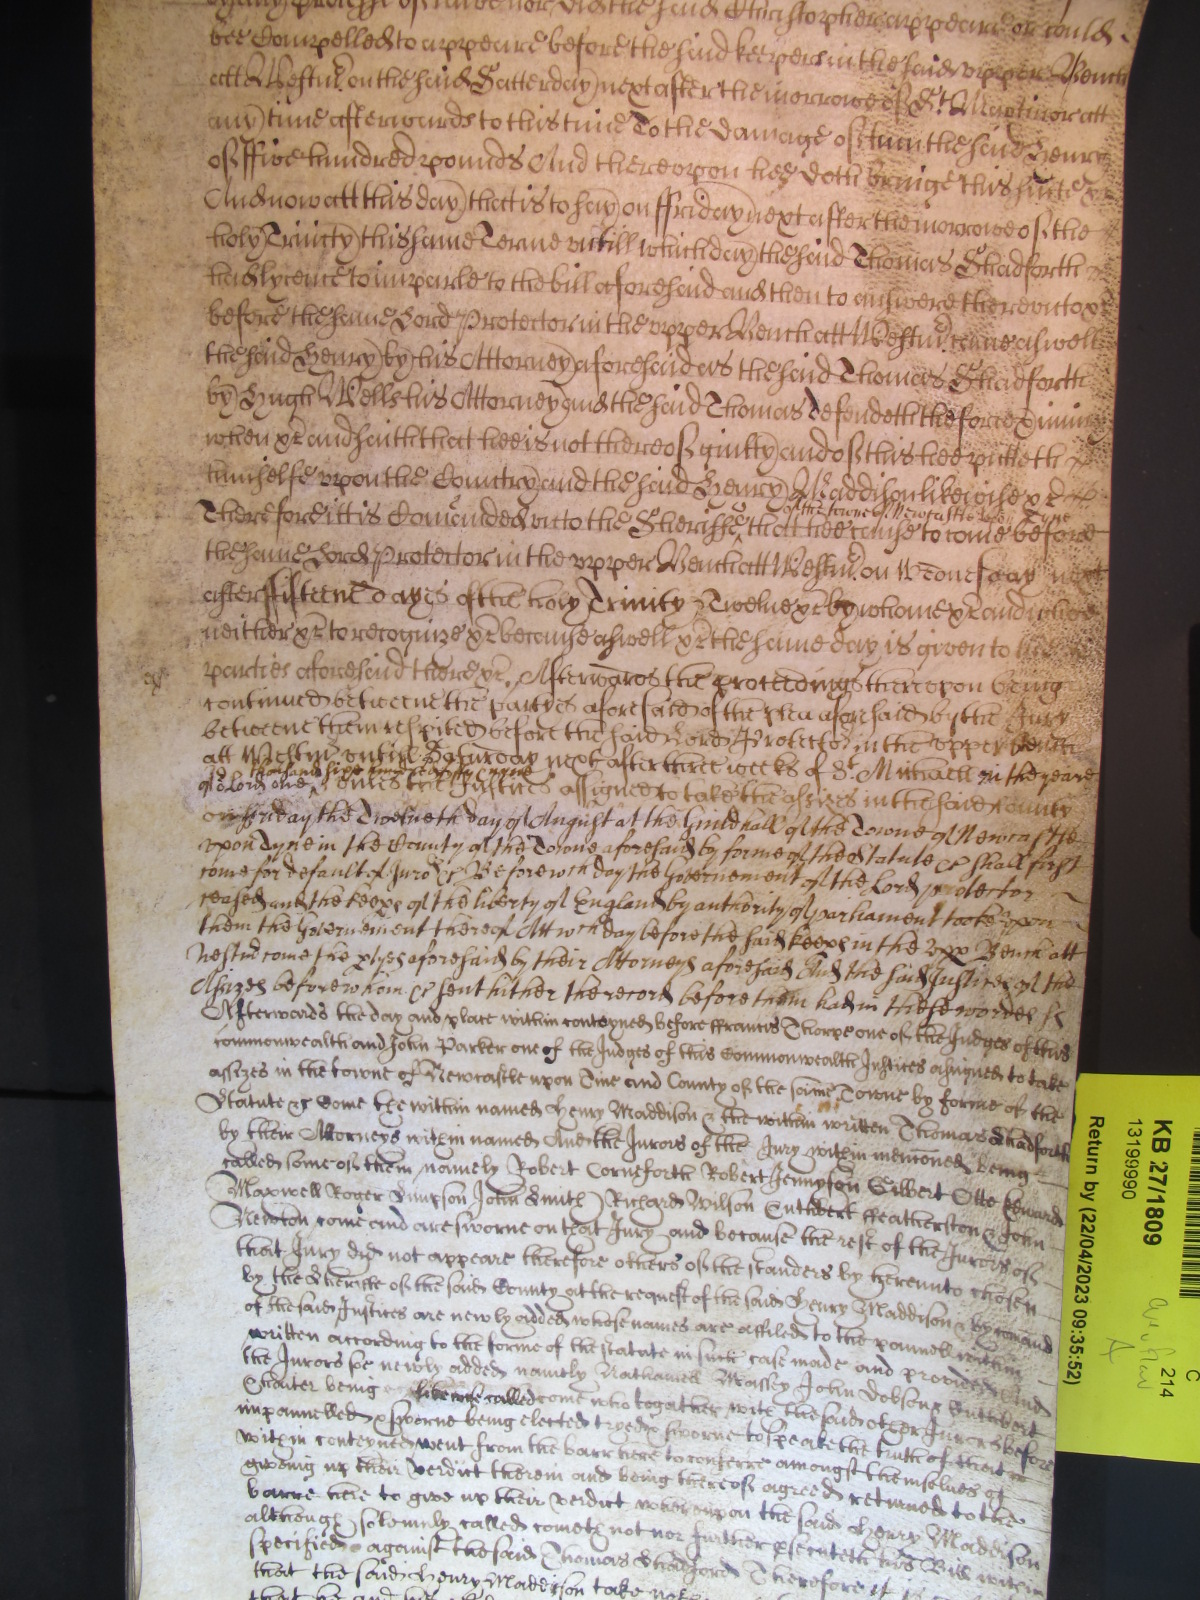 by any processe of nor did the said Christopher appeare or could
bee Compelled to appeare before the said keepers in the said upper Bench
att Westm̃. on the said Satterday next after the morrowe of St. Martin or att
any time afterwards to this time To the damage of him the said Henry
of ffive hundred pounds And thereupon hee doth bringe this suite &c
And now att this day that is to say on ffriday next after the morrowe of the
holy Trinity this same Terme untill which day the said Thomas Shadforth
had lycence to imparle to the bill aforesaid and then to answere thereunto &c
before the same Lord Protector in the upper Bench att Westm̃. came aswell
the said Henry by his Attorney aforesaid as the said Thomas Shadforth
by Hugh Wells his Attorney and the said Thomas defendeth the force & iniury
when &c and saith that hee is not thereof guilty and of this hee putteth
himselfe upon the Country and the said Henry Maddison likewise &c
of the towne of Newcastle upon Tyne
Therefore itt is Com̃anded unto the Sheriffe that hee cause to come before
the same Lord Protector in the upper Bench att Westm̃. on Wednesday next
after fifteene dayes of the holy Trinity Twelve &c by whome &c and whoe
neither &c to recognize &c because aswell &c the same day is given to the
parties aforesaid there &c. Afterwards the proceedings thereupon being
continued betweene the partyes aforesaid of the plea aforesaid by the Jury
betweene them respited before the said Lord Protector in the upper Bench
att Westm̃ untill Saturday next after three weeks of St. Michaell in the yeare
thousand sixe hundred fifty & nyne
of o Lord one unles the Justices assigned to take the assizes in the said County
on Friday the Twelueth day of August at the Guildhall of the Towne of Newcastle
upon Tyne in the County of the Towne aforesaid by forme of the Statute &c shall first
come for default of Juro &c Before wch day the Governement of the Lord protector
ceased and the keeps of the liberty of England by authority of parliament tooke upon
them the Governement thereof Att wch day before the said keeps in the upp Bench att
Westm̃ come the ptyes aforesaid by their Attorneys aforesaid And the said Justices of the
Assizes before whom &c sent hither the record before them had in these words sc
Afterwards the day and place within conteyned before ffrancis Thorpe one of the Judges of this
commonwealth and John Parker one of the Judges of this Commonwealth Justices assigned to take
assizes in the towne of Newcastle upon Tine and County of the same Towne by forme of the
Statute &c Come the within named Henry Maddison & the within written Thomas Shadforth
by their Attorneys within named And the Jurors of the Jury within mencõned being
called some of them namely Robert Corneforth Robert Jennyson Gilbert Otte Edward
Maxwell Roger Simpson John Smith Richard Wilson Cuthbert ffeatherston & John
Newton come and are sworne on that Jury and because the rest of the Jurors of
that Jury did not appeare therefore others of the standers by hereunto chosen
by the Sheriffe of the said County at the request of the said Henry Maddison & by com̃and
of the said Justices are newly added whose names are affiled to the pannell within
written according to the forme of the statute in such case made and provided And
the Jurors so newly added namely Nathaniel Massey John Dobson & Cuthbert
Souter being likewise called come who togather with the said other Jurors before
impannelled & sworne being elected tryed & sworne to speake the truth of that
within conteyned went from the barr here to conferre amongst themselves of
giveing up their verdict therein and being thereof agreed returned to the
barre here to give up their verdict whereupon the said Henry Maddison
although solemnly called cometh not nor further psecuteth his Bill within
specified against the said Thomas Shadford Therefore it
that the said Henry Maddison take
KB 27/1809
13199990
Return by (22/04/2023 09:35:52)
C
214